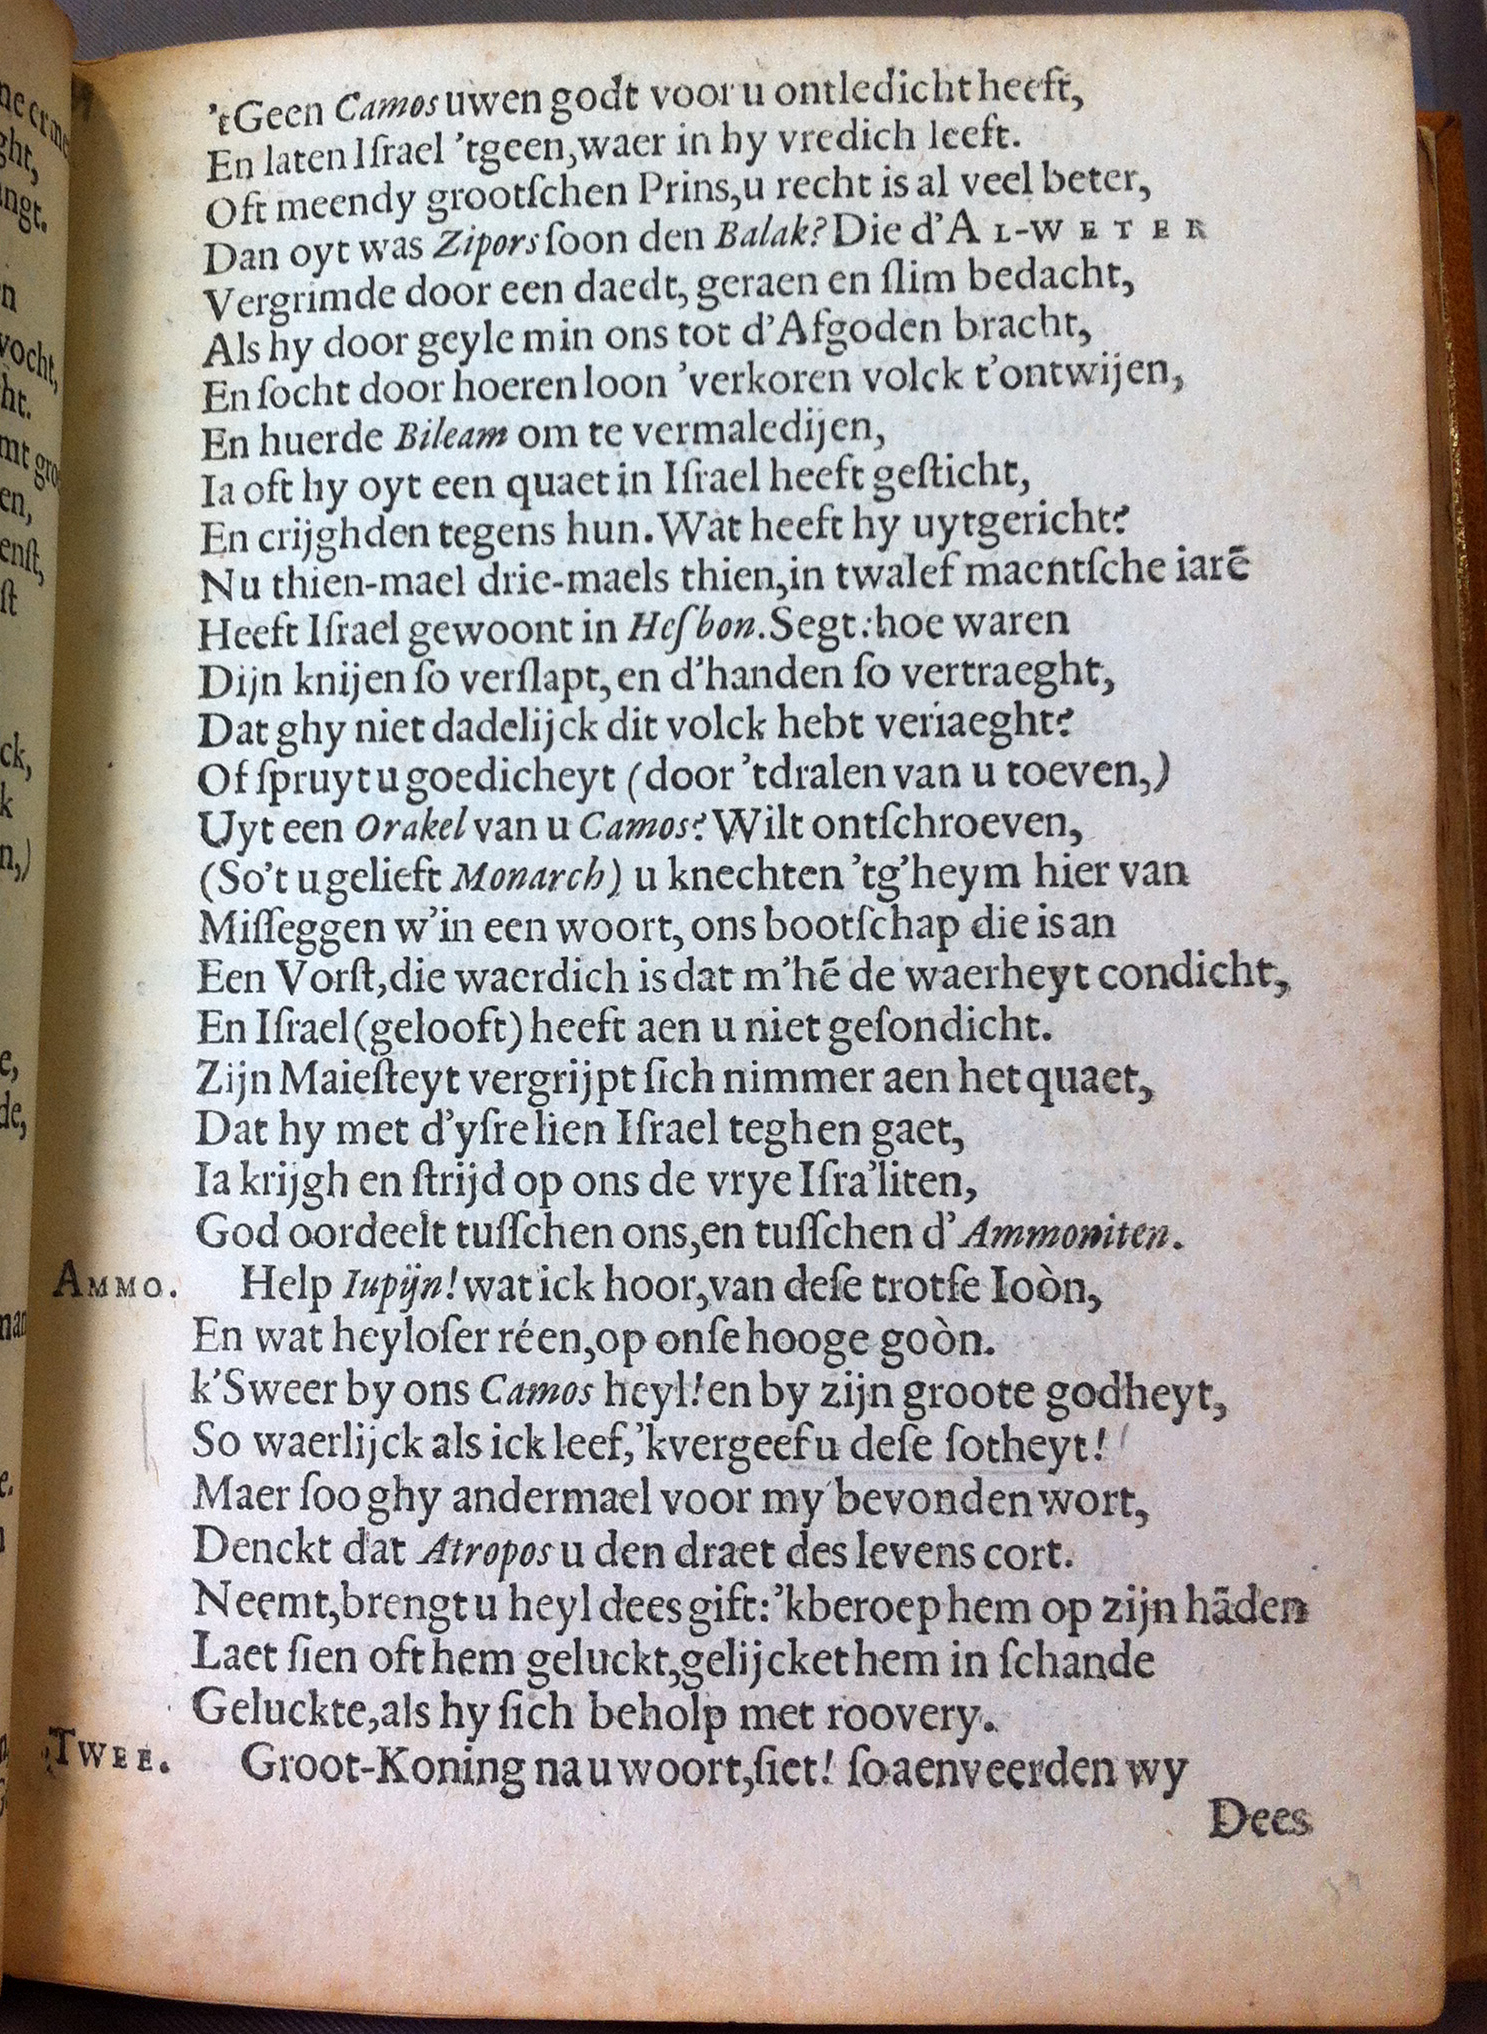 'tGeen Camos uwen godt voor u ontledicht heeft,
En laten Iſrael 'tgeen, waer in hy vredich leeft.
Oft meendy grootſchen Prins, u recht is al veel beter,
Dan oyt was Zipors ſoon den Balak? Die d'AL-WETER
Vergrimde door een daedt, geraen en ſlim bedacht,
Als hy door geyle min ons tot d'Afgoden bracht,
En ſocht door hoeren loon 'verkoren volck t'ontwijen,
En huerde Bileam om te vermaledijen,
Ia oft hy oyt een quaet in Iſrael heeft geſticht,
En crijghden tegens hun. Wat heeft hy uytgericht?
Nu thien-mael drie-maels thien, in twalef maentſche iarē
Heeft Iſrael gewoont in Heſbon. Segt: hoe waren
Dijn knijen ſo verſlapt, en d'handen ſo vertraeght,
Dat ghy niet dadelijck dit volck hebt veriaeght?
Of ſpruyt u goedicheyt (door 'tdralen van u toeven,)
Uyt een Orakel van u Camos? Wilt ontſchroeven,
(So't u gelieft Monarch) u knechten 'tg'heym hier van
Miſſeggen w'in een woort, ons bootſchap die is an
Een Vorſt, die waerdich is dat m'hē de waerheyt condicht,
En Iſrael (gelooft) heeft aen u niet geſondicht.
Zijn Maieſteyt vergrijpt ſich nimmer aen het quaet,
Dat hy met d'yſre lien Iſrael teghen gaet,
Ia krijgh en ſtrijd op ons de vrye Iſra'liten,
God oordeelt tuſſchen ons, en tuſſchen d'Ammoniten.
AMMO. Help Iupijn! wat ick hoor, van deſe trotſe Ioòn,
En wat heyloſer réen, op onſe hooge goòn.
k'Sweer by ons Camos heyl! en by zijn groote godheyt,
So waerlijck als ick leef, 'kvergeef u deſe ſotheyt!
Maer ſoo ghy andermael voor my bevonden wort,
Denckt dat Atropos u den draet des levens cort.
Neemt, brengt u heyl dees gift: 'kberoep hem op zijn hāden
Laet ſien oft hem geluckt, gelijcket hem in ſchande
Geluckte, als hy ſich beholp met roovery.
TWEE. Groot-Koning na u woort, ſiet! ſo aenveerden wy
Dees